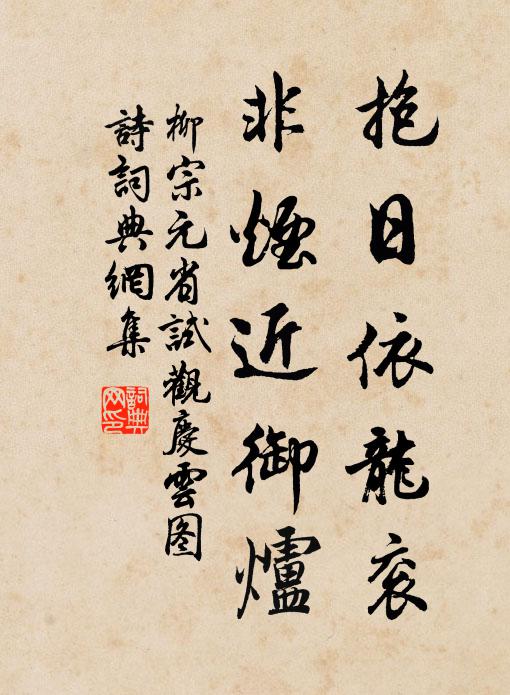 抱日依龍衮
非煙近御爐
柳宗元省試觀慶雲图
詩詞典網集
詞典
网印